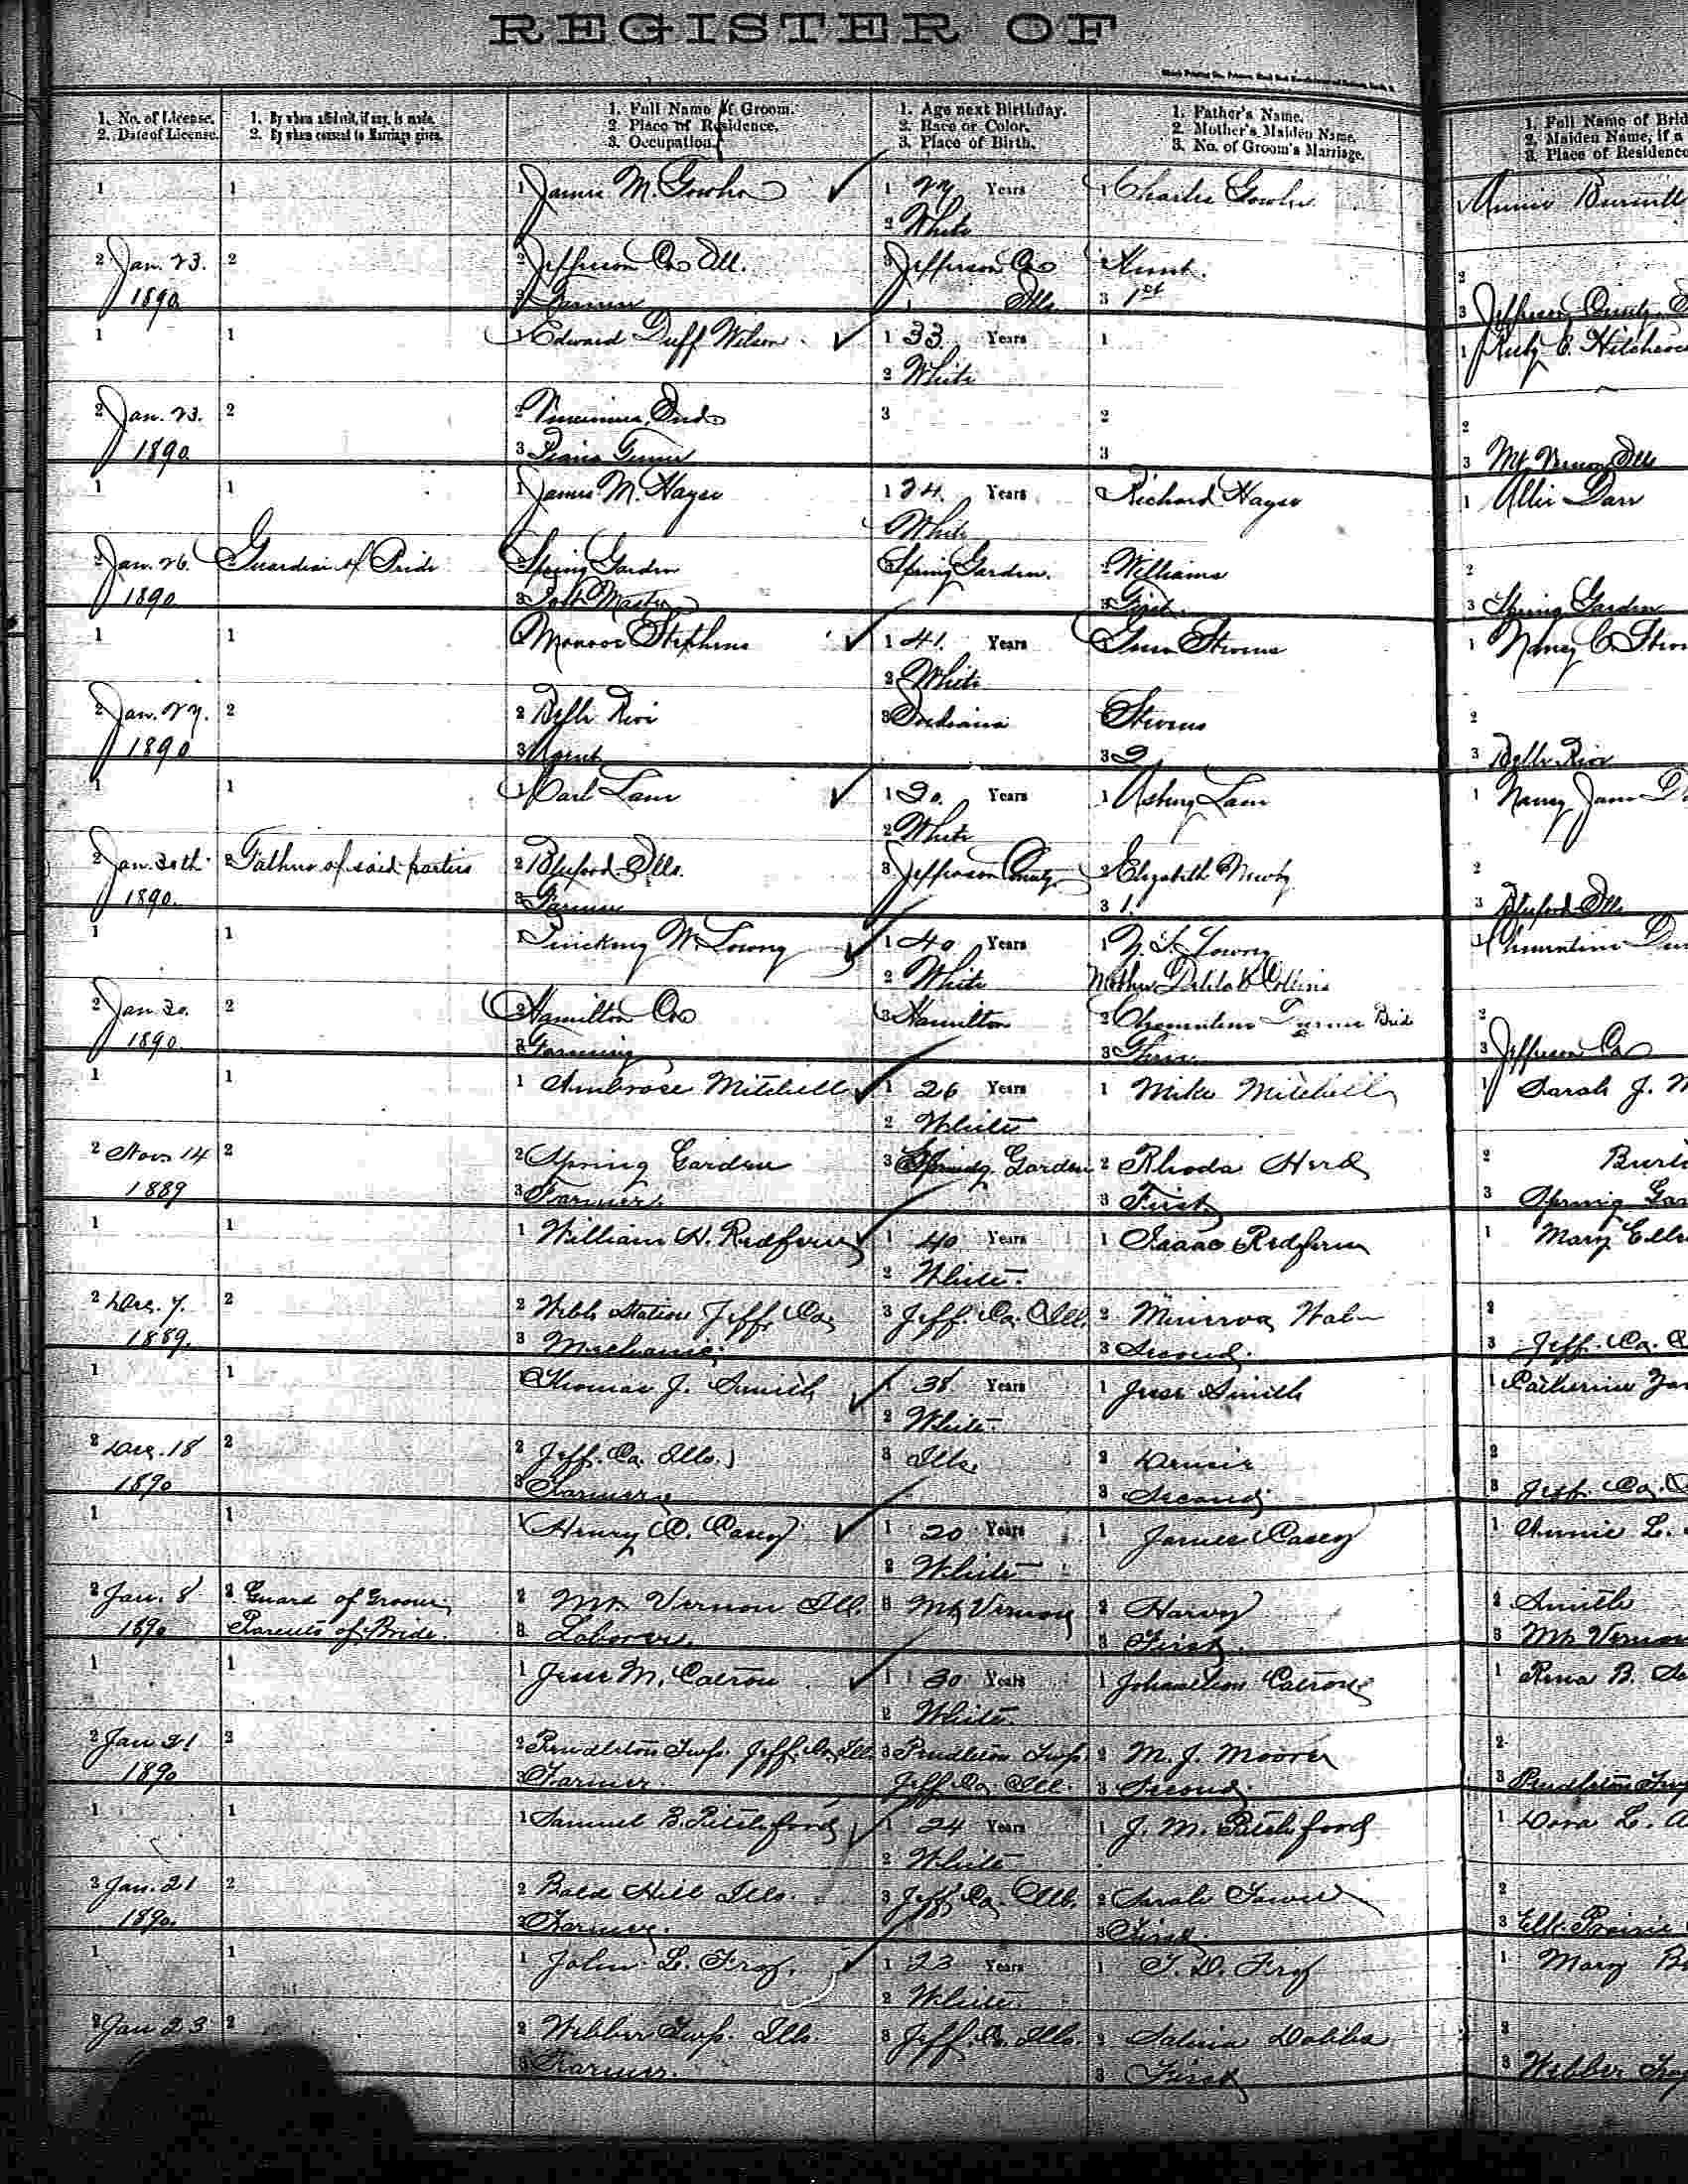 REGISTER OF
1. No. of License.
2. Date of License.
1. By whom affidavit, if any, is made.
2. By whom consent to Marriage given.
1. Full Name of Groom.
2. Place of Residence.
3. Occupation.
1. Age next Birthday.
2. Race or Color.
3. Place of Birth.
1. Father's Name.
2. Mother's Maiden Name.
3. No. of Groom's Marriage.
1. Full Name of Brid
2. Maiden Name, if a
3. Place of Residence
1 1 1 James M. 1 27 Years 1 Charlie
2 White
2 Jan. 23. 2 2 Jefferson Co Ill. 3 Jefferson Co 2
1890 3 Farmer Ills. 3 1st 3 Jefferson County
1 1 1 Edward Duff Wilson 1 33. Years 1 1 Ruby E. Hitchcoc
2 White
2 Jan. 23. 2 2 Vincennes, Ind 3 2 2
1890 3 Piano Tuner 3 3 Mt Vernon Ills
1 1 1 James M. Hayse 1 24. Years Richard Hayse 1 Allie Darr
White
2 Jan. 26. Guardian of Bride Spring Garden Spring Garden. 2 Williams 2
1890 3 Post Master 3 First. 3 Spring Garden
1 1 Monroe Stephens 1 41. Years Stevens 1 Nancy C. Steve
2 White
2 Jan. 27. 2 2 Belle Rive 3 Indiana Stevens 2
1890 3 Agent 3 2 3 Belle Rive
1 1 1 Carl Lane 1 20. Years 1 Asbury Lane 1 Nancy Jane
2 White
2 Jan. 30th 2 Fathers of said parties 2 Bluford Ills. 3 Jefferson County 2 Elizabeth Newby 2
1890. 3 Farmer 3 1. 3 Bluford Ills
1 1 1 Pinckney W. Lowry 1 40 Years 1 Lowry 1 Clementine
2 White Mother Collins
2 Jan. 30. 2 2 Hamilton Co 3 Hamilton 2 Clementine Turner Brid 2
1890. 3 Farming 3 3 Jefferson Co
1 1 1 Ambrose Mitchell 1 26 Years 1 Mike Mitchell 1 Sarah J. M
2 White
2 Nov. 14 2 2 Spring Garden 3 Spring Garden 2 Rhoda Herd 2
1889 3 Farmer. 3 First 3 Spring Gar
1 1 1 William H. Redfern 1 40 Years 1 Isaac Redfern 1 Mary Elle
2 White.
2 Dec. 7. 2 2 Webb Station Jeff. Co. 3 Jeff. Co. Ill. 2 Minerva 2
1889. 3 Mechanic. 3 Second. 3 Jeff. Co.
1 1 1 Thomas J. Smith 1 38 Years 1 Jesse Smith 1 Catherine
2 White.
2 Dec. 18 2 2 Jeff. Co. Ills. 3 Ills. 2 2
1890 3 Farmer 3 Second 3 Jeff. Co.
1 1 1 Henry C. Casey 1 20 Years 1 James Casey 1 Annie L.
2 White
2 Jan. 8 2 Guard of Groom 2 Mt. Vernon Ill. 3 Mt Vernon 2 Harvy 2 Smith
1890 Parents of Bride. 3 Laborer. 3 First. 3 Mt. Vernon
1 1 1 Jesse M. Catron 1 30 Years 1 Catron 1 Rena B.
2 White.
2 Jan 21 2 2 Pendleton Twp. Jeff. Co. Ill. 3 Pendleton Twp. 2 M. J. Moore 2
1890 3 Farmer. Jeff. Co. Ill. 3 Second. 3 Pendleton Twp
1 1 1 Samuel B. Pitchford 1 24 Years 1 J. M. Pitchford 1 Dora L.
2 White
2 Jan. 21 2 2 Bald Hill Ills. 3 Jeff. Co. Ill. 2 Sarah 2
1890. 3 Farmer. 3 First. 3 Elk Prairie
1 1 1 John L. 1 23 Years 1 1 Mary
2 White.
2 Jan 23 2 2 Webber Twp. Ills. 3 Jeff. Co. Ills. 2 Salina Dobbs 2
3 Farmer. 3 First 3 Webber